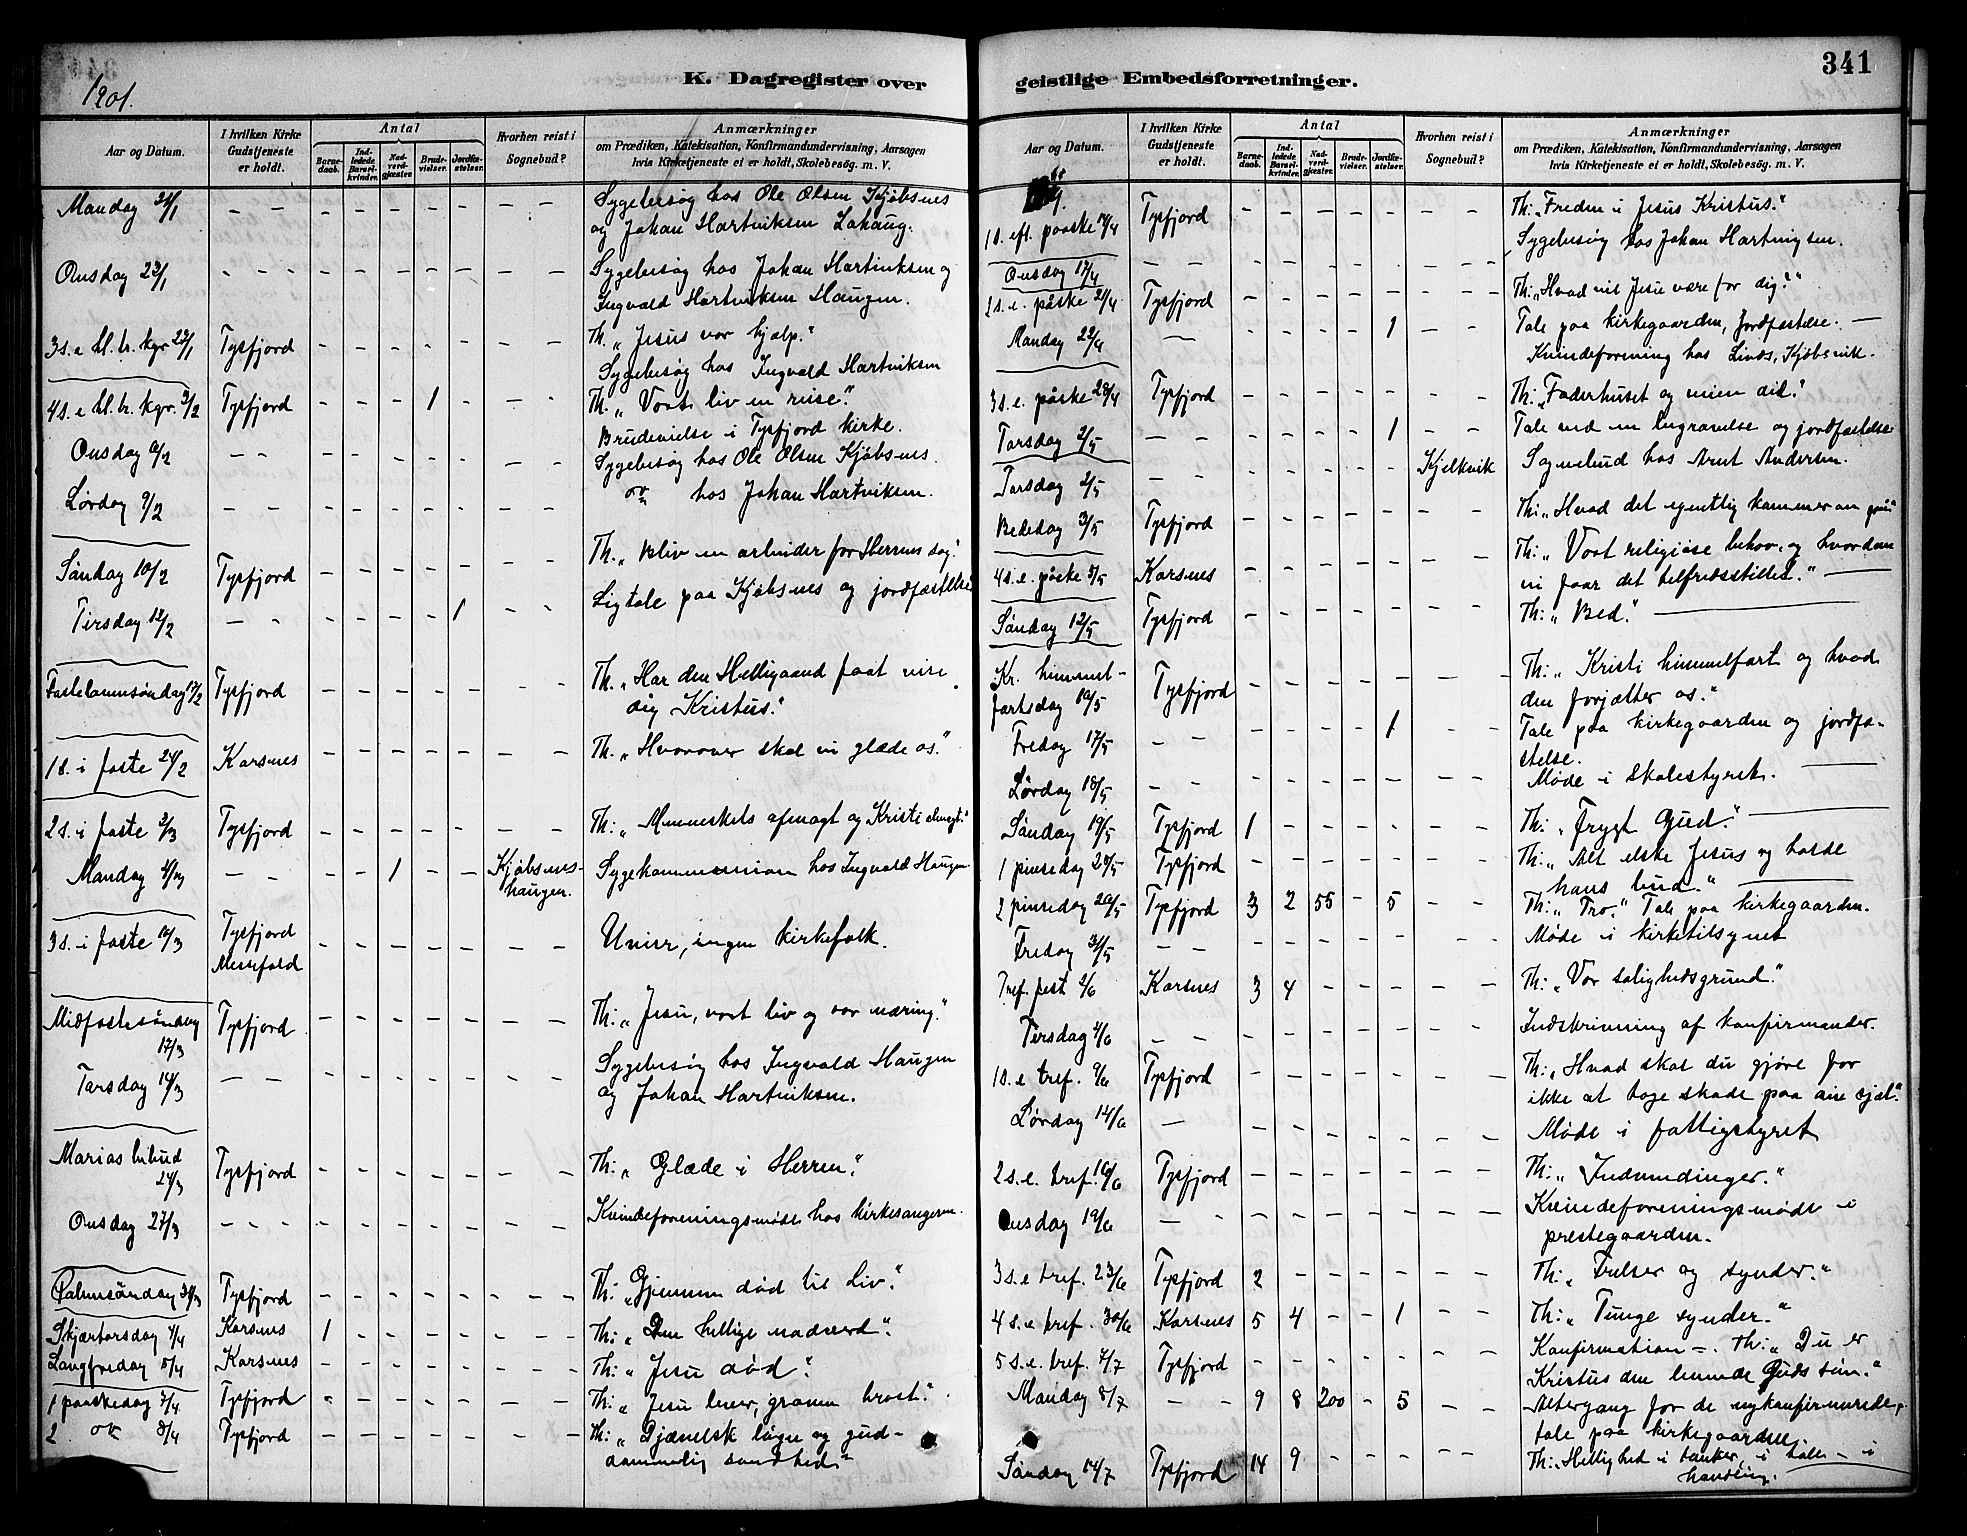 341
1901.
K. Dagregister over geistlige Embedsforretninger.
Aar og Datum.
I hvilken Kirke Gudstjeneste er holdt.
Antal
Barnedaab.
Indledede Barselkvinder.
Nadverdgjester.
Brudevielser.
Jordfæstelser.
Hvorhen reist i Sognebud?
Anmærkninger
om Prædiken, Katekisation, Konfirmandundervisning, Aarsagen
hvis Kirketjeneste et er holdt, Skolebesøg. m. V.
Mandag 21/1 - - - - - - - - - Sygebesøg hos Ole Olsen Kjøbsnes
og Johan Hartviksen Lahaug.
Onsdag 23/1 - - - - - - - - - Sygebesøg hos Johan Hartviksen og
Ingvald Hartviksen Haugen.
3 s. e hl. tr. kgr Tysfjord - - - - - - - Th. „Jesus vor hjælp.“
Sygebesøg hos Ingvald Hartviksen
4 s. e hl. tr. kgr. 3/2 Tysfjord - - - 1 - - - Th. „Vort liv en reise.“
Brudevielse i Tysfjord kirke.
Onsdag 6/2 - - - - - - - - - Sygebesøg hos Ole Olsen Kjøbsnes.
Lørdag 9/2 - - - - - - - - - hos Johan Hartviksen.
Søndag 10/2 Tysfjord - - - - - - - Th. „Bliv en arbeider for Herrens dag.“
Tirsdag 12/2 - - - - - - 1 - - Ligtale paa Kjøbsnes og jordfæstelse
Fastelavnssøndag 17/2 Tysfjord - - - - - - - Th. „Har den Helligaand faat vise
dig Kristus.“
1 s. i faste 24/2 Karsnes - - - - - - - Th. „Hvorover skal vi glæde os.“
2 s. i faste 3/3 Tysfjord - - - - - - - Th: „Menneskets afmagt og Kristi almagt.“
Mandag 4/3 - - - - 1 - - Kjøbsnes-
haugen. Sygekommunion hos Ingvald Haugen
3 s. i faste 10/3 Tysfjord
Messefald - - - - - - - Uveir, ingen kirkefolk.
Midfastesøndag
17/3 Tysfjord - - - - - - - Th: „Jesu, vort liv og vor næring.“
Torsdag 14/3 - - - - - - - - - Sygebesøg hos Ingvald Haugen
og Johan Hartviksen.
Marias bebud
24/3 Tysfjord - - - - - - - Th: „Glæde i Herren“.
Onsdag 27/3 - - - - - - - - - Kvindeforeningsmøde hos kirkesangeren.
Palmesøndag 31/3 Tysfjord - - - - - - - Th: „Gjennem død til Liv“.
Skjærtorsdag 4/4 Karsnes 1 - - - - - - Th: „Den hellige nadverd“.
Langfredag 5/4 Karsnes - - - - - - - Th: „Jesu død“.
1 paaskedag 7/4 Tysfjord - - - - - - - Th: „Jesu lever, graven brast“.
2 do 8/4 Tysfjord - - - - - - - Th: „Djævelsk løgn og gud-
dommelig sandhed.“
Aar og Datum.
I hvilken Kirke Gudstjeneste er holdt.
Antal
Barnedaab.
Indledede Barselkvinder.
Nadverdgjester.
Brudevielser.
Jordfæstelser.
Hvorhen reist i Sognebud?
Anmærkninger
om Prædiken, Katekisation, Konfirmandundervisning, Aarsagen
hvis Kirketjeneste et er holdt, Skolebesøg. m. V.
1 s. eft. paaske 14/4 Tysfjord - - - - - - - Th: „Freden i Jesus Kristus.“
Onsdag 17/4 - - - - - - - - - Sygebesøg hos Johan Hartvigsen.
2 s. e. påske 21/4 Tysfjord - - - - - - - Th: „Hvad vil Jesu være for dig?“
Mandag 22/4 - - - - - 1 - - Tale paa kirkegaarden, Jordfæstelse. -
Kvindeforening hos Linds, Kjøbsvik.
3 s. e. påske 28/4 Tysfjord - - - - - - - Th: „Faderhuset og veien did.“
Torsdag 2/5 - - - - - - 1 - - Tale ved en begravelse og jordfæstelse
Torsdag 2/5 - - - - - - - Kjelkvik Sognebud hos Arnt Andersen.
Bededag 3/5 Tysfjord - - - - - - - Th: „Hvad det egentlig kommer an på.“
4 s. e. påske 5/5 Karsnes - - - - - - - Th: „Vort religiøse behov, og hvordan
vi faar det tilfredsstillet.“
Søndag 12/5 Tysfjord - - - - - - - Th: „Bed.“
Kr. himmel-
fartsdag 16/5 Tysfjord - - - - - - - Th: „Kristi himmelfart og hvad
den forjætter os.“
Fredag 17/5 - - - - - - 1 - - Tale paa kirkegaarden og jordfæ-
stelse.
Lørdag 18/5 - - - - - - - - - Møde i skolestyret.
Søndag 19/5 Tysfjord 1 - - - - - - Th: „Frygt Gud.“
1 pinsedag 26/5 Tysfjord - - - - - - - Th: „At elske Jesus og holde
hans bud.“
2 pinsedag Tysfjord 3 2 55 - 5 - - Th: „Tro.“ Tale paa kirkegaarden.
Fredag 31/5 - - - - - - - - - Møde i kirketilsynet
Tref. fest 2/6 Karsnes 3 4 - - - - - Th: „Vor salighedsgrund.“
Tirsdag 4/6 - - - - - - - - - Indskrivning af konfirmander.
1 s. e tref. 9/6 Tysfjord - - - - - - - Th: „Hvad skal du gjøre for
ikke at tage skade paa din sjæl.“
Lørdag 14/6 - - - - - - - - Møde i fattigstyret
2 s. e. tref. 16/6 Tysfjord - - - - - - - Th: „Indvendinger.“
Onsdag 19/6 - - - - - - - - - Kvindeforeningsmøde i
prestegaarden.
3 s. e tref. 23/6 Tysfjord 2 - - - - - - Th: „Frelser og synder.“
4 s. e tref. 30/6 Karsnes 5 4 - - 1 - - Th: „Tunge synder.“
5 s. e. tref. 7/7 Tysfjord - - - - - - - Konfirmation -. Th: „Du er
Kristus den levende Guds søn.“
Mandag 8/7 - - 9 8 200 - 5 - - Altergang for de nykonfirmerede,
tale paa kirkegaarden
Søndag 14/7 Tysfjord 14 9 - - - - - Th: „Hellighed i tanker, i tale - i
handling.